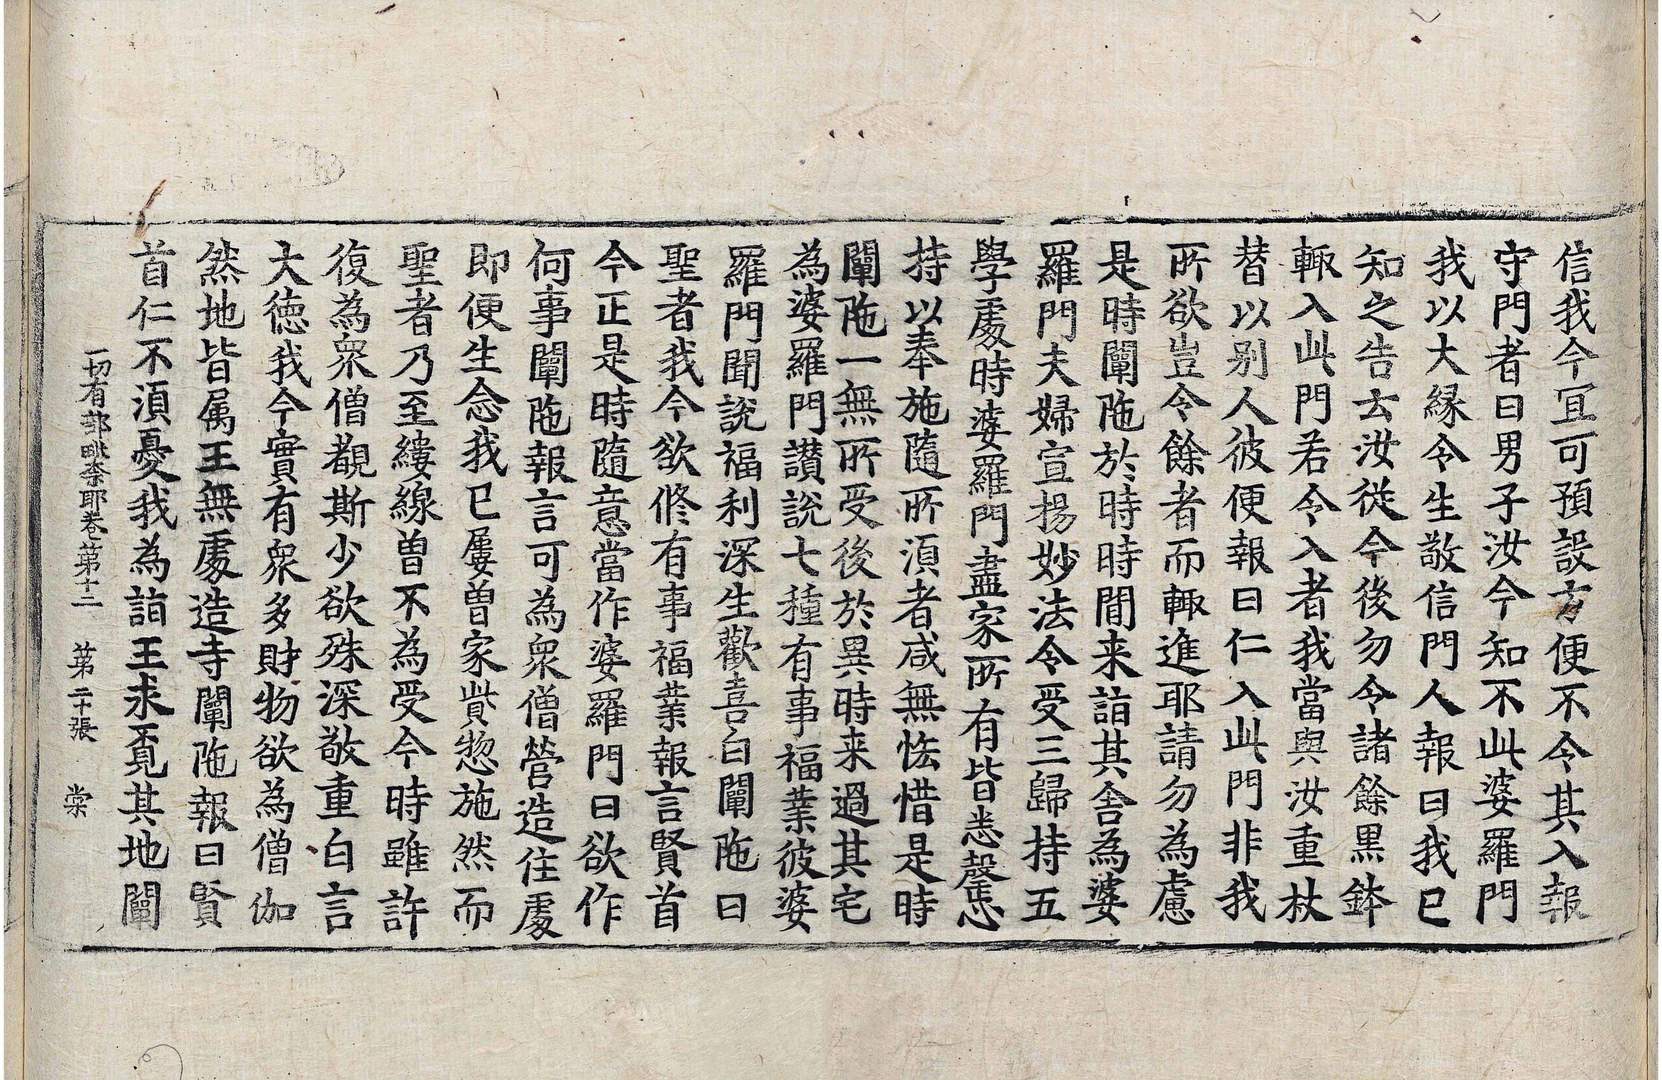 信我今冝可預設方便不令其入報
守門者曰男子汝今知不此婆羅門
我以大縁令生敬信門人報曰我已
知之告去汝從今後勿令諸餘黒鉢
輙入此門若令入者我當與汝重杖
替以別人彼便報曰仁入此門非我
所欲豈令餘者而輙進耶請勿為慮
是時闡陁於時時間来詣其舎為婆
羅門夫婦宣揚妙法令受三歸持五
學處時婆羅門盡家所有皆悉罄忠
持以奉施隨所湏者咸無恡惜是時
闡陁一無所受後於異時来過其宅
為婆羅門讃説七種有事福業彼婆
羅門聞說福利深生歡喜白闡陁曰
聖者我今欲修有事福業報言賢首
今正是時隨意當作婆羅門曰欲作
何事闡陁報言可為衆僧營造住處
即便生念我已屢曽家貲惣施然而
聖者乃至縷線曽不為受今時雖許
復為衆僧覩斯少欲殊深敬重白言
大徳我今實有衆多財物欲為僧伽
然地皆属王無處造寺闡陁報曰賢
首仁不湏憂我為詣王求覔其地闡
一切有部毗奈耶巻第十二　第二十張　棠